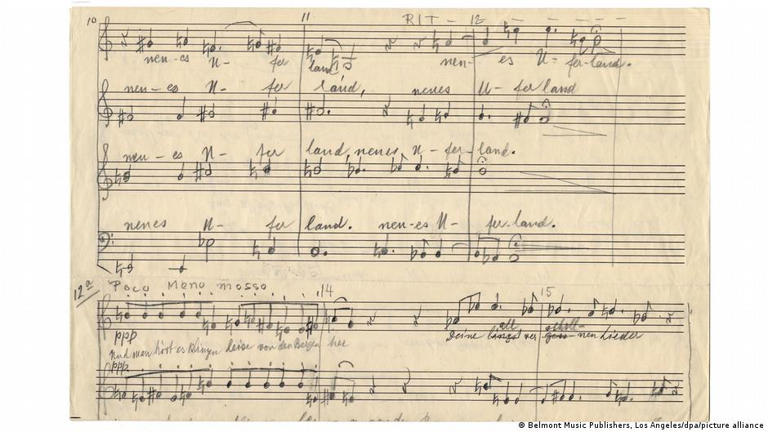 10 11 RIT - 12 - - - - - -
nen-es U- fer land nen- es U- fer-land.
nen-es U- fer land, neues U- fer land
nen-es U- fer land, neues U- fer- land.
neues U- fer land. nen-es U- fer-land.
12a Poco meno mosso 14 15
ppp
Und man hört es klingen leise von den Bergen her Seine all ver- scholl- nen Lieder
ppp
© Belmont Music Publishers, Los Angeles/dpa/picture alliance